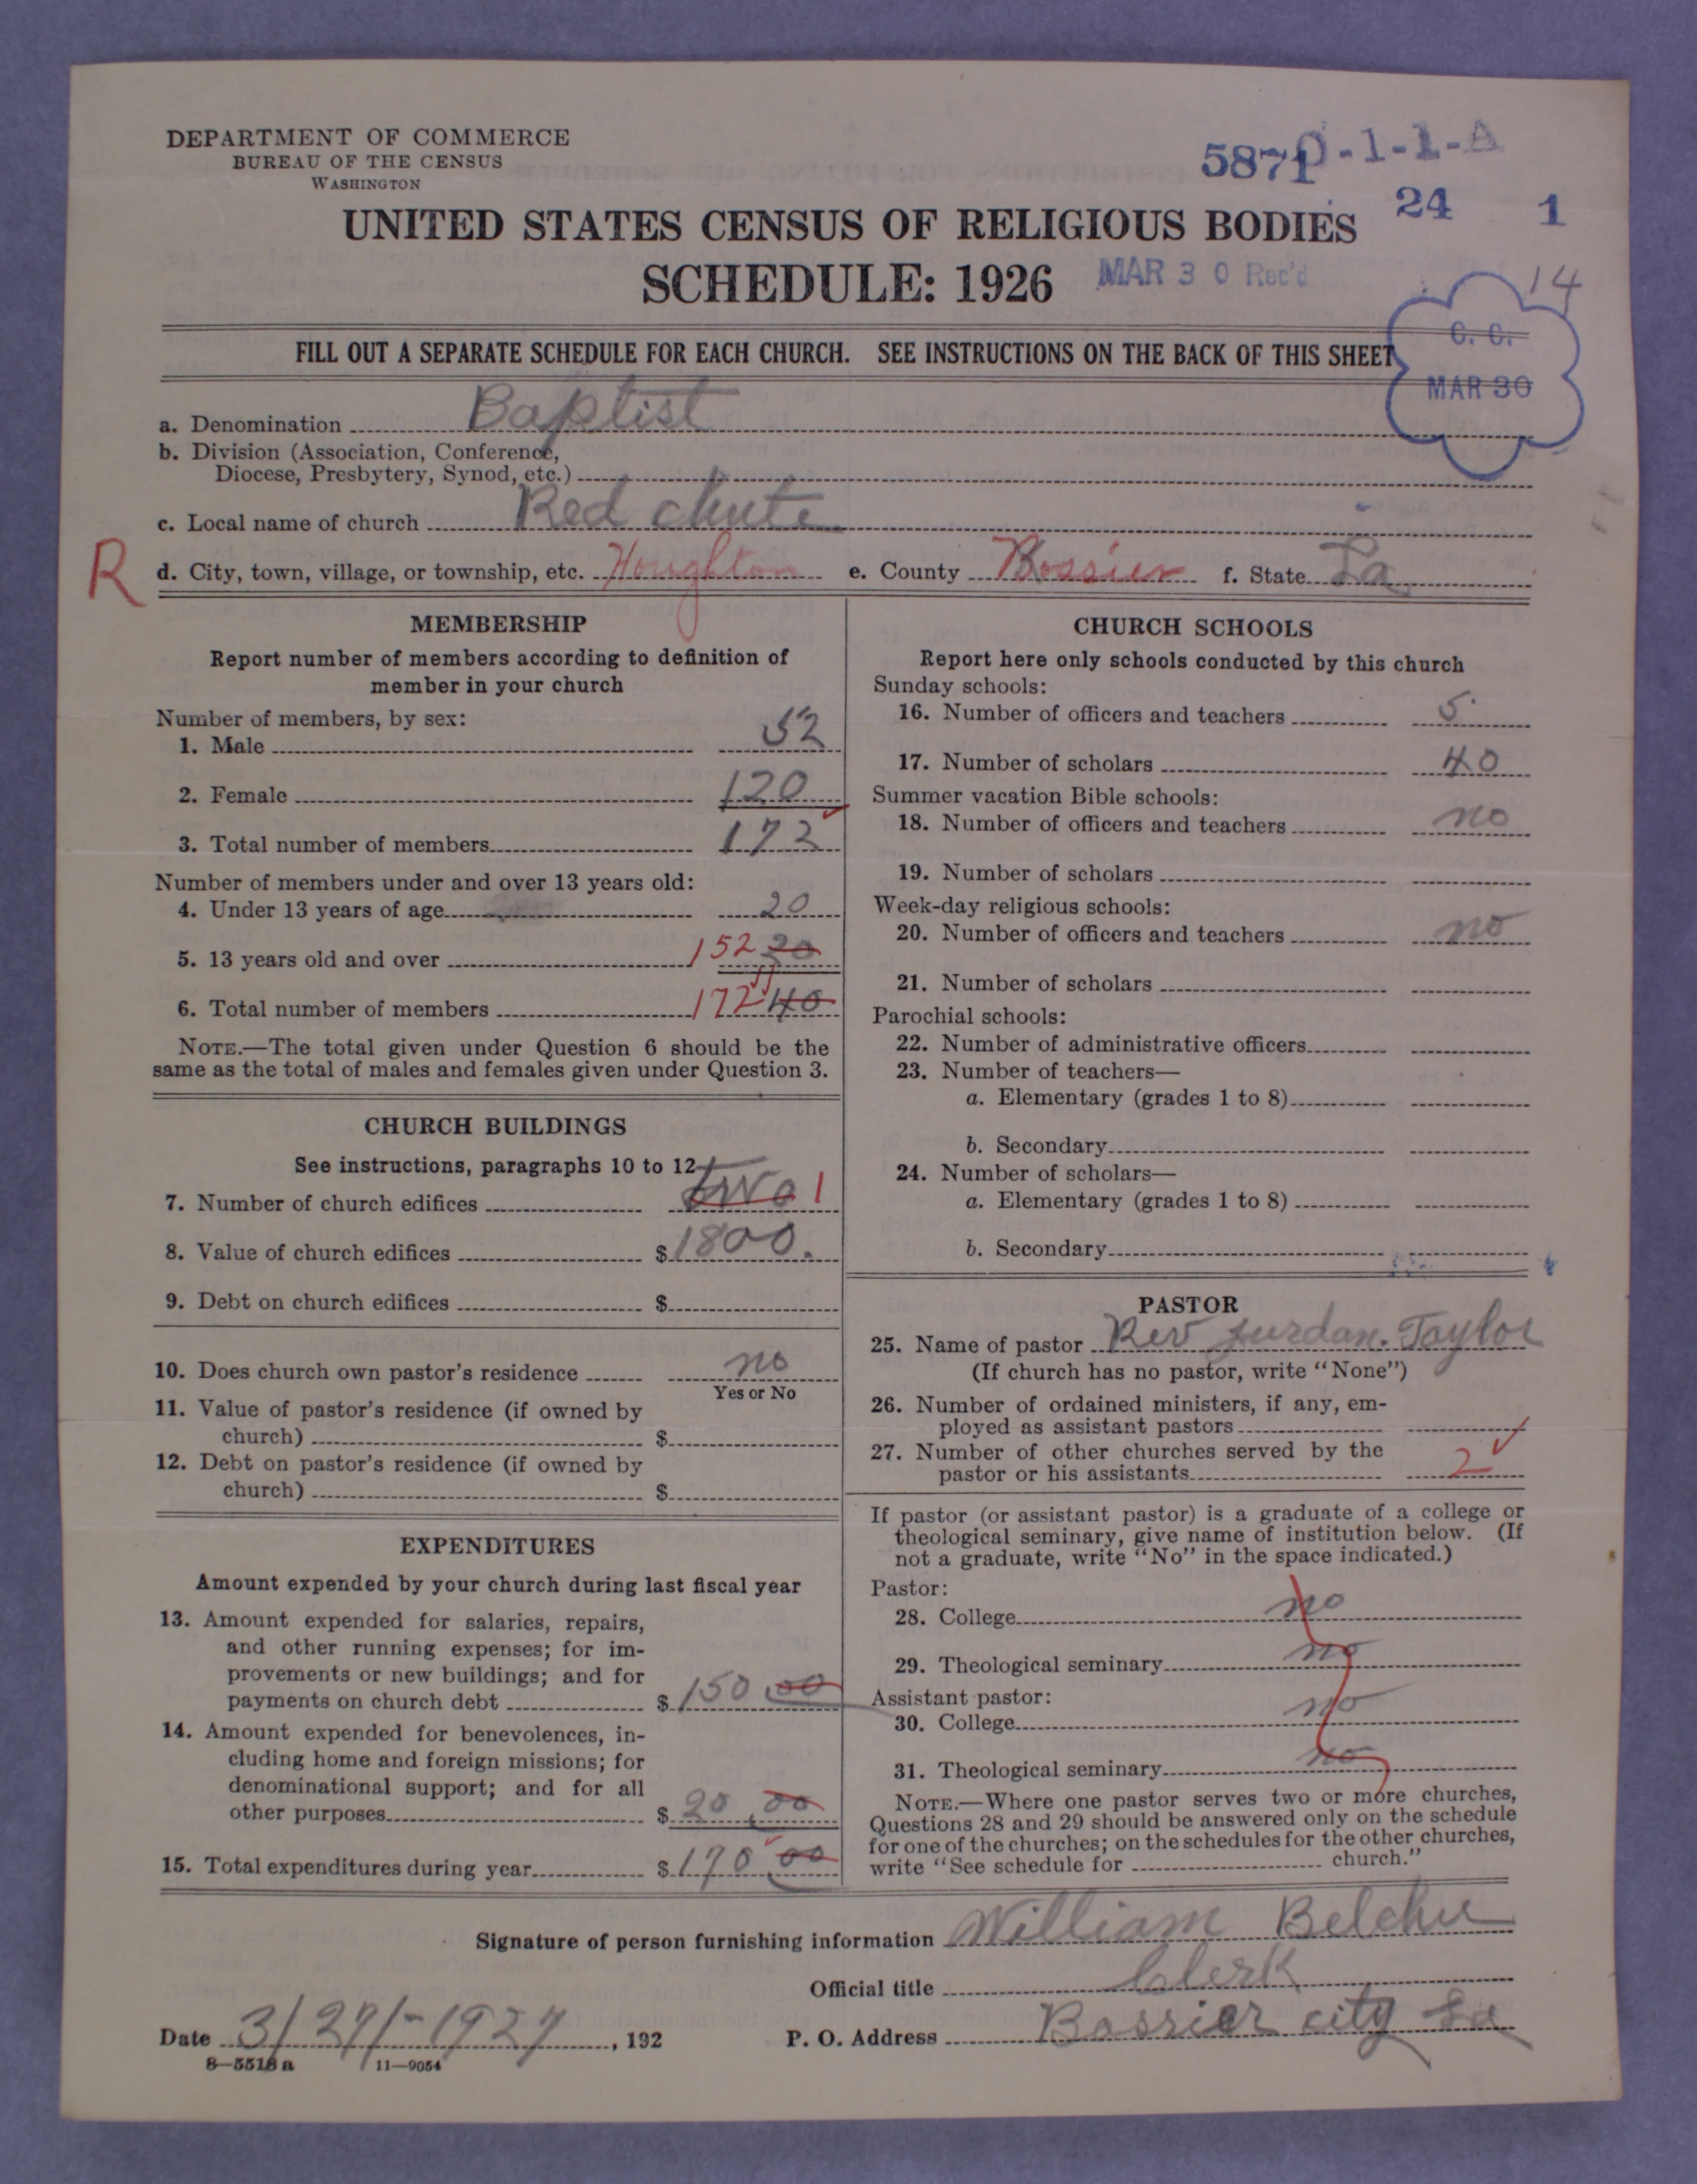 DEPARTMENT OF COMMERCE
BUREAU OF THE CENSUS
WASHINGTON
5871 0-1-1-A
24 1
UNITED STATES CENSUS OF RELIGIOUS BODIES
SCHEDULE: 1926
MAR 30 Rec'd
14
C. C.
MAR 30
FILL OUT A SEPARATE SCHEDULE FOR EACH CHURCH. SEE INSTRUCTIONS ON THE BACK OF THIS SHEET
a. Denomination Baptist
b. Division (Association, Conference,
Diocese, Presbytery, Synod, etc.)
c. Local name of church Red chute
R
d. City, town, village, or township, etc. Houghton e. County Bossier f. State La
MEMBERSHIP
Report number of members according to definition of
member in your church
Number of members, by sex:
1. Male 52
2. Female 120
3. Total number of members 172
Number of members under and over 13 years old:
4. Under 13 years of age 20
5. 13 years old and over 152 20
6. Total number of members 172 40
NOTE.—The total given under Question 6 should be the
same as the total of males and females given under Question 3.
CHURCH BUILDINGS
See instructions, paragraphs 10 to 12
7. Number of church edifices two 1
8. Value of church edifices $ 1800.
9. Debt on church edifices $
10. Does church own pastor's residence no
Yes or No
11. Value of pastor's residence (if owned by
church) $
12. Debt on pastor's residence (if owned by
church) $
EXPENDITURES
Amount expended by your church during last fiscal year
13. Amount expended for salaries, repairs,
and other running expenses; for im-
provements or new buildings; and for
payments on church debt $ 150.00
14. Amount expended for benevolences, in-
cluding home and foreign missions; for
denominational support; and for all
other purposes $ 20.00
15. Total expenditures during year $ 170.00
CHURCH SCHOOLS
Report here only schools conducted by this church
Sunday schools:
16. Number of officers and teachers 5
17. Number of scholars 40
Summer vacation Bible schools:
18. Number of officers and teachers no
19. Number of scholars
Week-day religious schools:
20. Number of officers and teachers no
21. Number of scholars
Parochial schools:
22. Number of administrative officers
23. Number of teachers—
a. Elementary (grades 1 to 8)
b. Secondary
24. Number of scholars—
a. Elementary (grades 1 to 8)
b. Secondary
PASTOR
25. Name of pastor Rev Jurdan. Taylor
(If church has no pastor, write "None")
26. Number of ordained ministers, if any, em-
ployed as assistant pastors
27. Number of other churches served by the
pastor or his assistants 2
If pastor (or assistant pastor) is a graduate of a college or
theological seminary, give name of institution below. (If
not a graduate, write "No" in the space indicated.)
Pastor:
28. College no
29. Theological seminary no
Assistant pastor:
30. College no
31. Theological seminary no
NOTE.—Where one pastor serves two or more churches,
Questions 28 and 29 should be answered only on the schedule
for one of the churches; on the schedules for the other churches,
write "See schedule for church."
Signature of person furnishing information William Belcher
Official title Clerk
Date 3/29/-1927, 192
P. O. Address Bossier city La
8—5518 a 11—9054